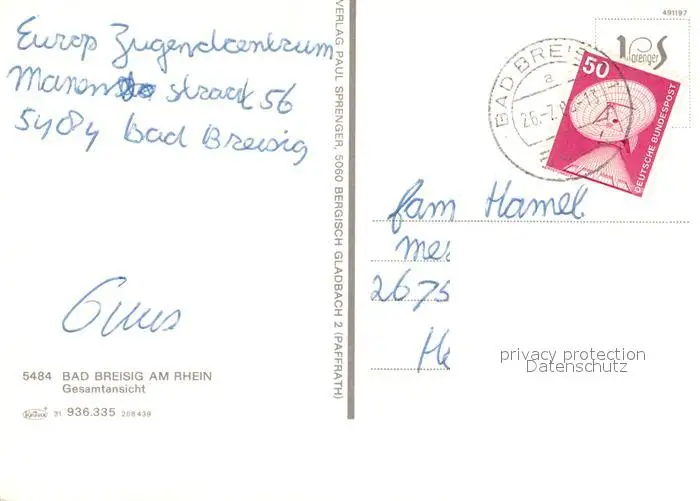 Europ Jugendcentrum
straat 56
5484 Bad Breisig
Guus
5484 BAD BREISIG AM RHEIN
Gesamtansicht
Krüger 31 936.335 208439
VERLAG PAUL SPRENGER, 5060 BERGISCH GLADBACH 2 (PAFFRATH)
491197
Sprenger
BAD BREISIG
a
26.-7.
50
DEUTSCHE BUNDESPOST
fam Hamel
me
2675
He
privacy protection
Datenschutz